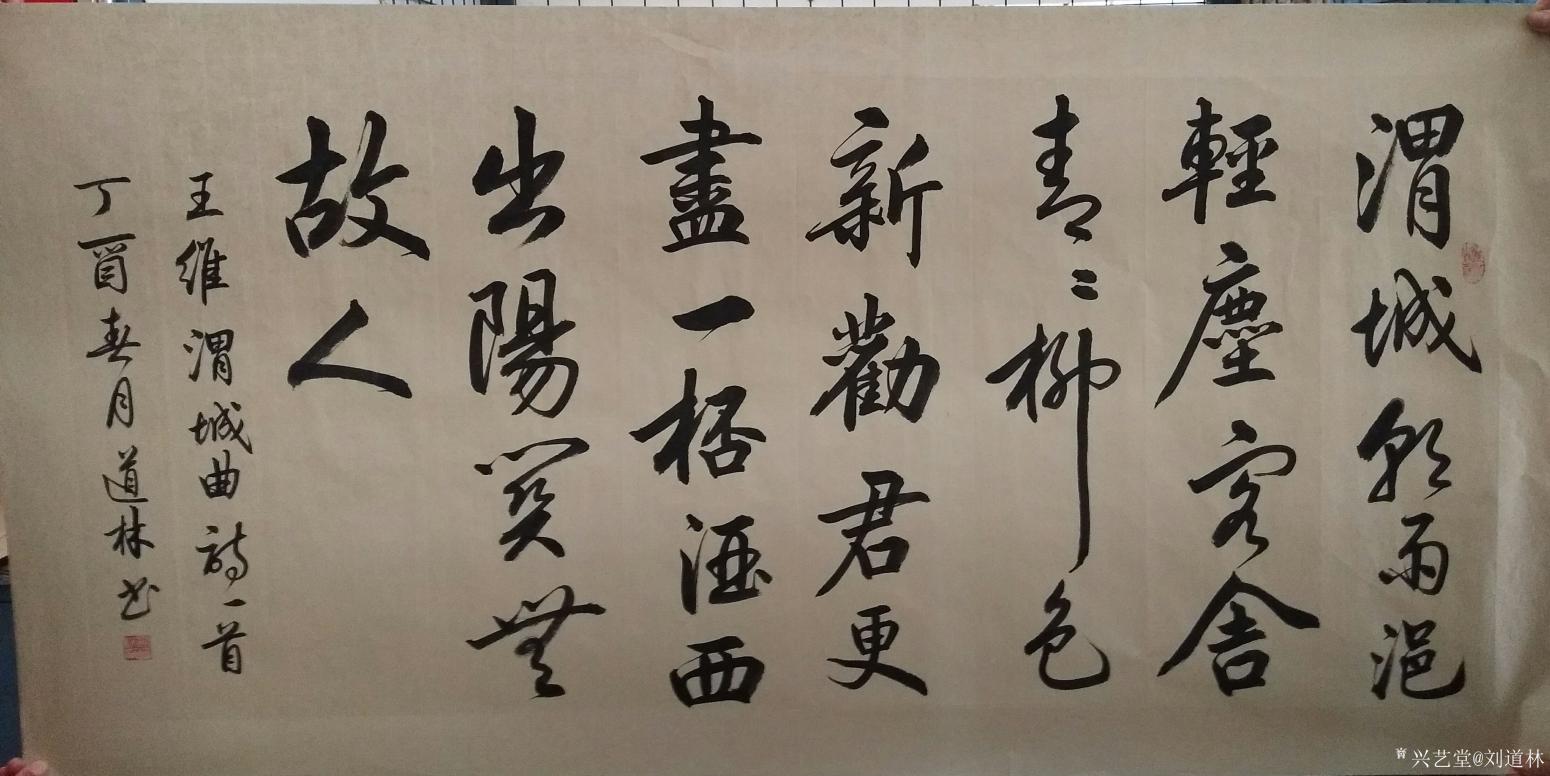 渭城朝雨浥
輕塵客舍
青〻柳色
新勸君更
盡一桮酒西
出陽關無
故人
王維渭城曲詩一首
丁酉春月道林书
兴艺堂@刘道林